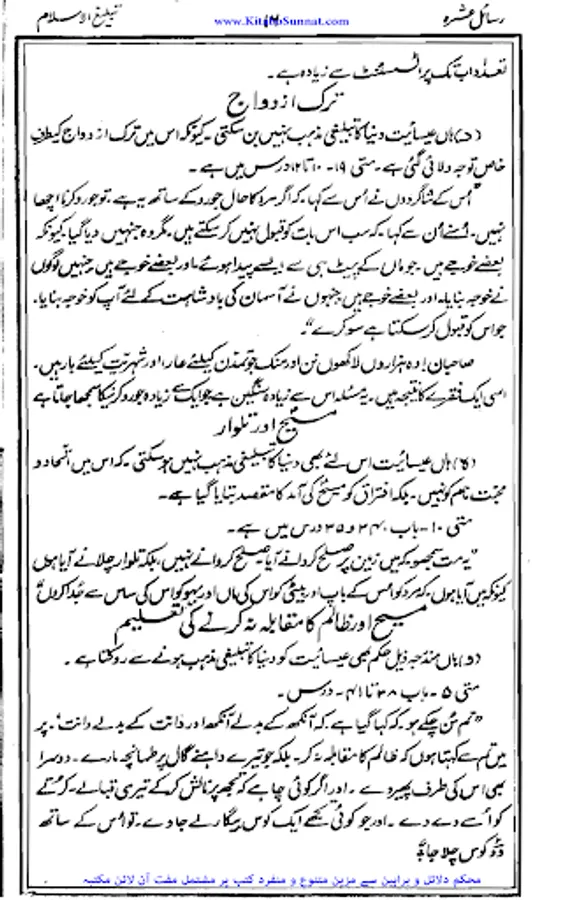 رسائل عشرہ
www.KitaboSunnat.com
۱۶
تبلیغ الاسلام
تعداد اب تک پراٹسٹنٹ سے زیادہ ہے۔
ترک ازدواج
(د) ہاں عیسائیت دنیا کا تبلیغی مذہب نہیں بن سکتی۔ کیونکہ اس میں ترک ازدواج کیطرف
خاص توجہ دلائی گئی ہے۔ متی ۱۹۔ ۱۰ تا ۱۲ درس میں ہے۔
"اُس کے شاگردوں نے اُس سے کہا۔ کہ اگر مرد کا حال جورو کے ساتھ یہ ہے۔ تو جورو کرنا اچھا
نہیں۔ اُسنے اُن سے کہا۔ کہ سب اس بات کو قبول نہیں کر سکتے ہیں۔ مگر وہ جنہیں دیا گیا۔ کیونکہ
بعضے خوجے ہیں۔ جو ماں کے پیٹ ہی سے ایسے پیدا ہوئے۔ اور بعضے خوجے ہیں جنہیں لوگوں
نے خوجہ بنایا۔ اور بعضے خوجے ہیں جنہوں نے آسمان کی بادشاہت کے لئے آپ کو خوجہ بنایا۔
جو اس کو قبول کر سکتا ہے سو کرے"۔
صاحبان! وہ ہزاروں لاکھوں نن اور منک جو تمدن کیلئے عار اور شہریت کیلئے بار ہیں۔
اسی ایک فقرے کا نتیجہ ہیں۔ یہ مسئلہ اس سے زیادہ سنگین ہے جو ایک سے زیادہ جورو کرنیکا سمجھا جاتا ہے
مسیح اور تلوار
(ہ) ہاں عیسائیت اس لئے بھی دنیا کا تبلیغی مذہب نہیں ہو سکتی۔ کہ اس میں اتحاد و
محبت نام کو نہیں۔ بلکہ افتراق کو مسیح کی آمد کا مقصد بتایا گیا ہے۔
متی ۱۰۔ باب ۳۴ و ۳۵ درس میں ہے۔
"یہ مت سمجھو کہ میں زمین پر صلح کروانے آیا۔ صلح کروانے نہیں، بلکہ تلوار چلانے آیا ہوں
کیونکہ میں آیا ہوں۔ کہ مرد کو اُس کے باپ اور بیٹی کو اس کی ماں اور بہو کو اس کی ساس سے جُدا کروں"
مسیح اور ظالم کا مقابلہ نہ کرنے کی تعلیم
(و) ہاں مندرجہ ذیل حکم بھی عیسائیت کو دنیا کا تبلیغی مذہب ہونے سے روکتا ہے۔
متی ۵۔ باب ۳۸ تا ۴۱۔ درس۔
"تم سُن چکے ہو۔ کہ کہا گیا ہے کہ آنکھ کے بدلے آنکھ اور دانت کے بدلے دانت"۔ پر
میں تم سے کہتا ہوں کہ ظالم کا مقابلہ نہ کر۔ بلکہ جو تیرے داہنے گال پر طمانچہ مارے۔ دوسرا
بھی اس کی طرف پھیر دے۔ اور اگر کوئی چاہے کہ تجھ پر نالش کر کے تیری قبا لے۔ کُرتے
کو اُسے دے دے۔ اور جو کوئی تجھے ایک کوس بیگار لے جاوے۔ تو اُس کے ساتھ
دو کوس چلا جا"
محکم دلائل و براہین سے مزین متنوع و منفرد کتب پر مشتمل مفت آن لائن مکتبہ